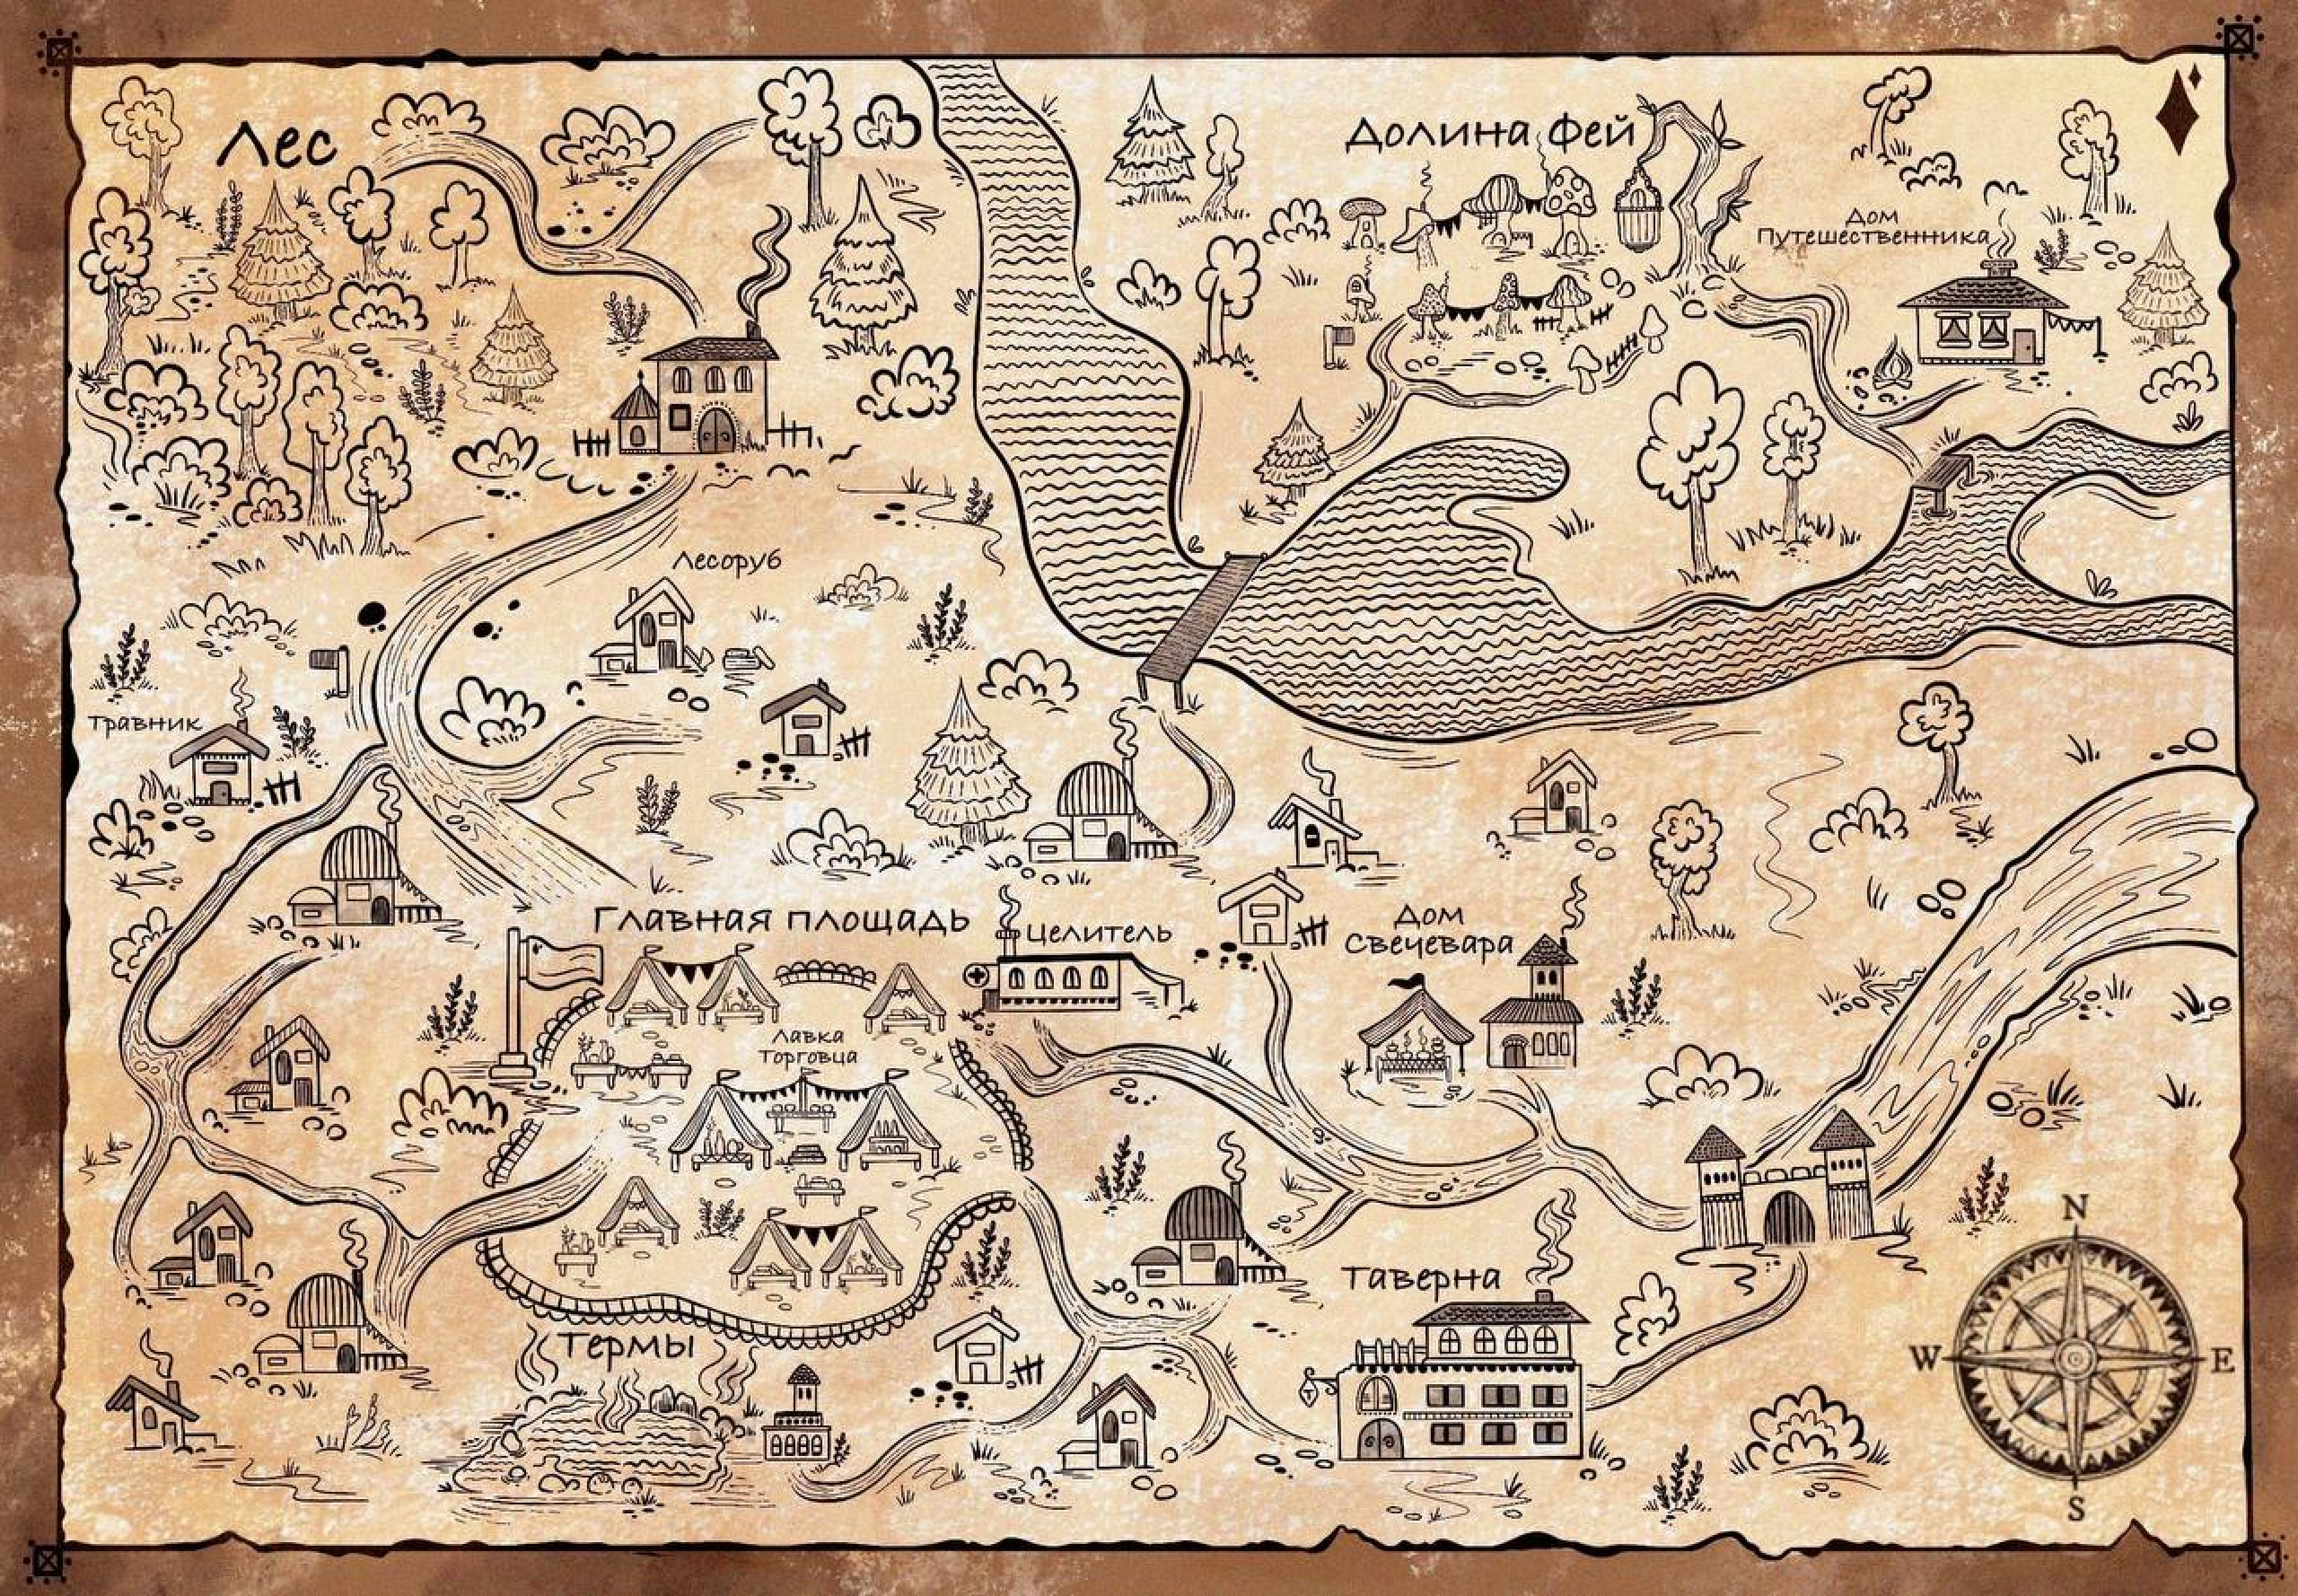 Лес
Долина Фей
Дом
Путешественника
Лесоруб
Травник
Главная площадь
Целитель
Дом
Свечевара
Лавка
Торговца
Таверна
Термы
N
W
E
S
T